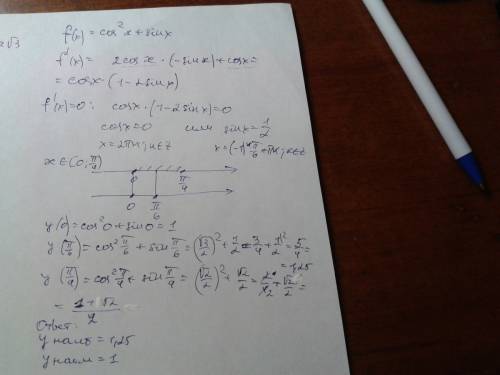 2√3
f(x) = cos²x + sinx
f'(x) = 2cosx · (-sinx) + cosx =
= cosx · (1-2sinx)
f'(x)=0: cosx · (1-2sinx)=0
cosx=0 или sinx=1/2
x=2πk; k∈Z x=(-1)ᵏ π/6+πk; k∈Z
x∈(0; π/4)
0 π/4
0 π/6
y(0)=cos²0+sin0=1
y(π/6)=cos² π/6 + sin π/6 = (√3/2)² + 1/2 = 3/4 + 1/2 = 5/4 =
= 1,25
y(π/4)=cos² π/4 + sin π/4 = (√2/2)² + √2/2 = 2/4 + √2/2 =
= (1+√2)/2
Ответ:
y наиб = 1,25
y наим = 1